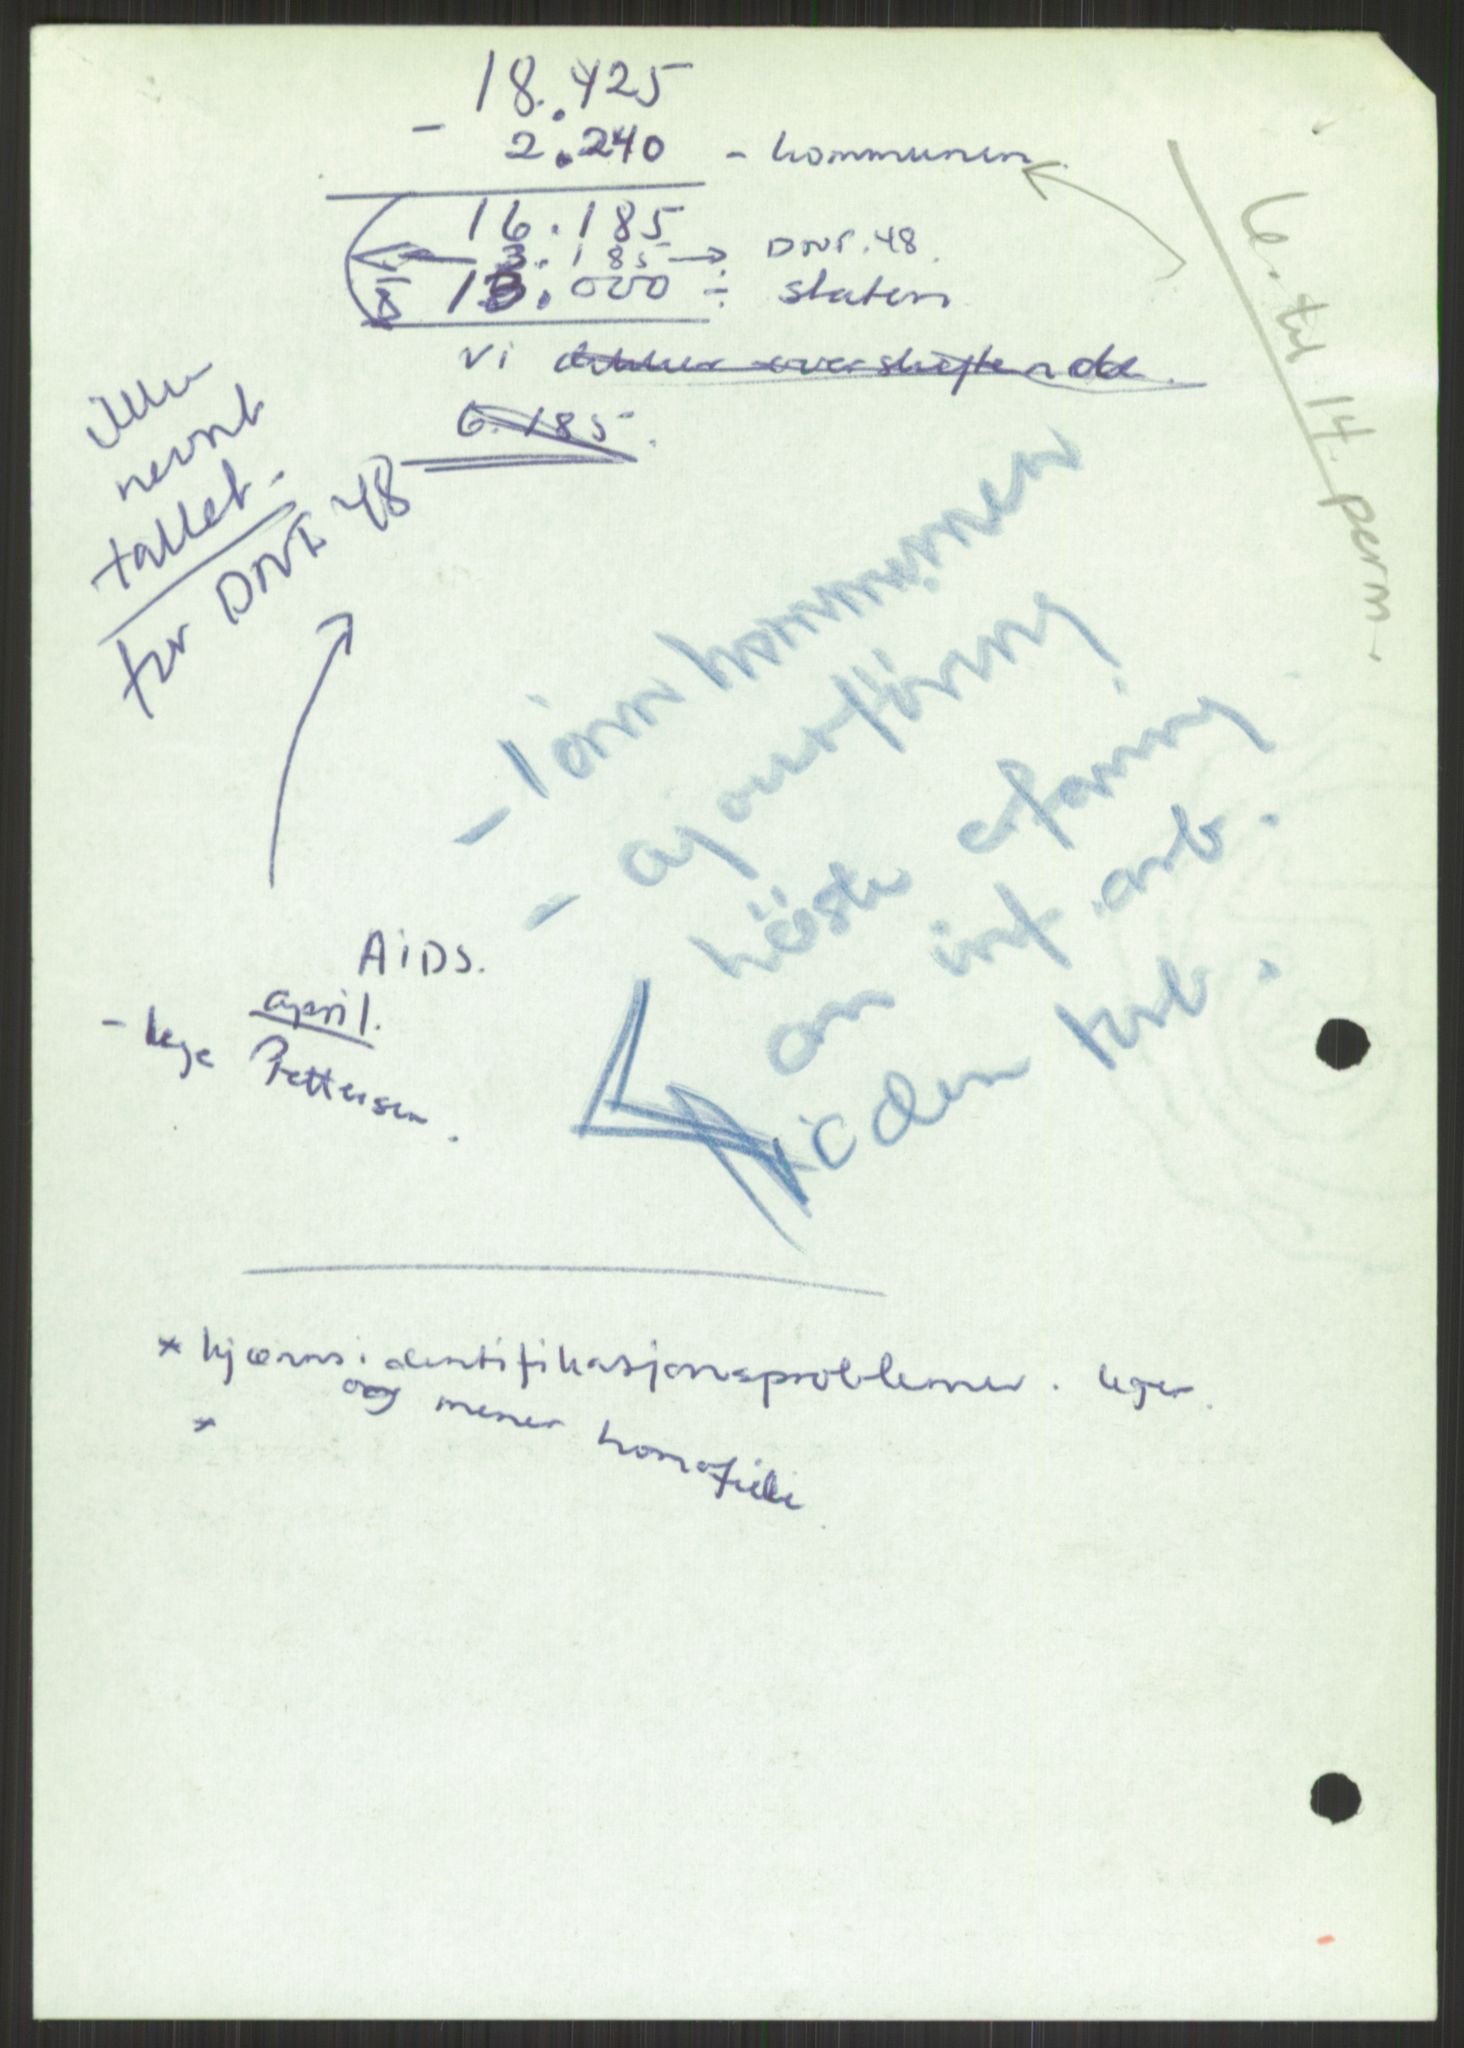 18.425
- 2.240 - kommunen.
16.185
3.185 → DNF. 48.
13.000 ÷ staten
vi dekker overskytende.
6.185.
6. til 14. perm.
ikke
nevnt
tallet.
for DNF 48
- kommunen
- ajourføring
høste erfaring
om int. arb.
AIDS.
april.
- lege Pettersen.
* kjønnsidentifikasjonsproblemer. leger.
og mener homofile
*